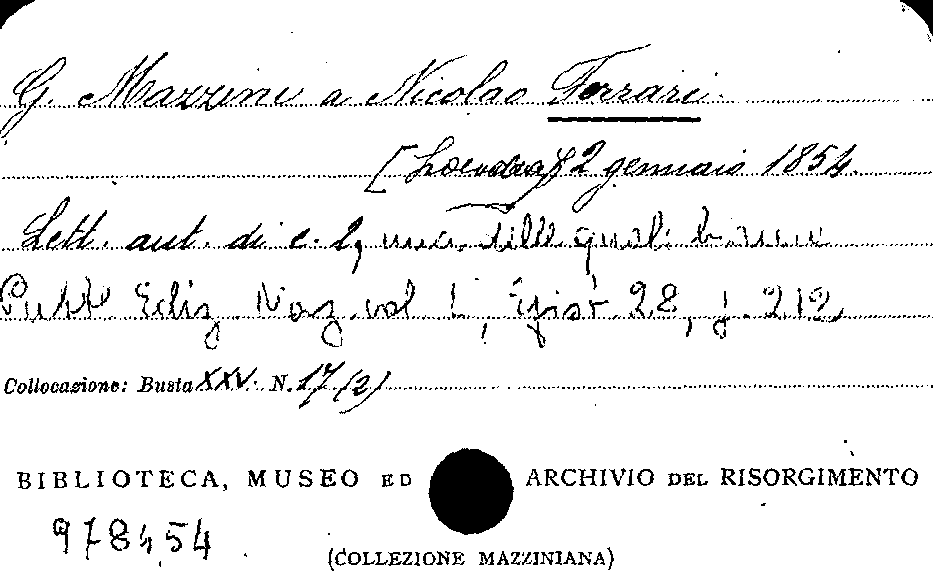 G. Mazzini a Nicolao Ferrari.
[Londra], 2 gennaio 1854.
Lett. aut. di c. 2, una delle quali bianca
Pubbl. Ediz. Naz. vol. L, Epist. 28, p. 212
Collocazione: Busta XXV. N. 17 (2)
BIBLIOTECA, MUSEO ED ARCHIVIO DEL RISORGIMENTO
978454
(COLLEZIONE MAZZINIANA)